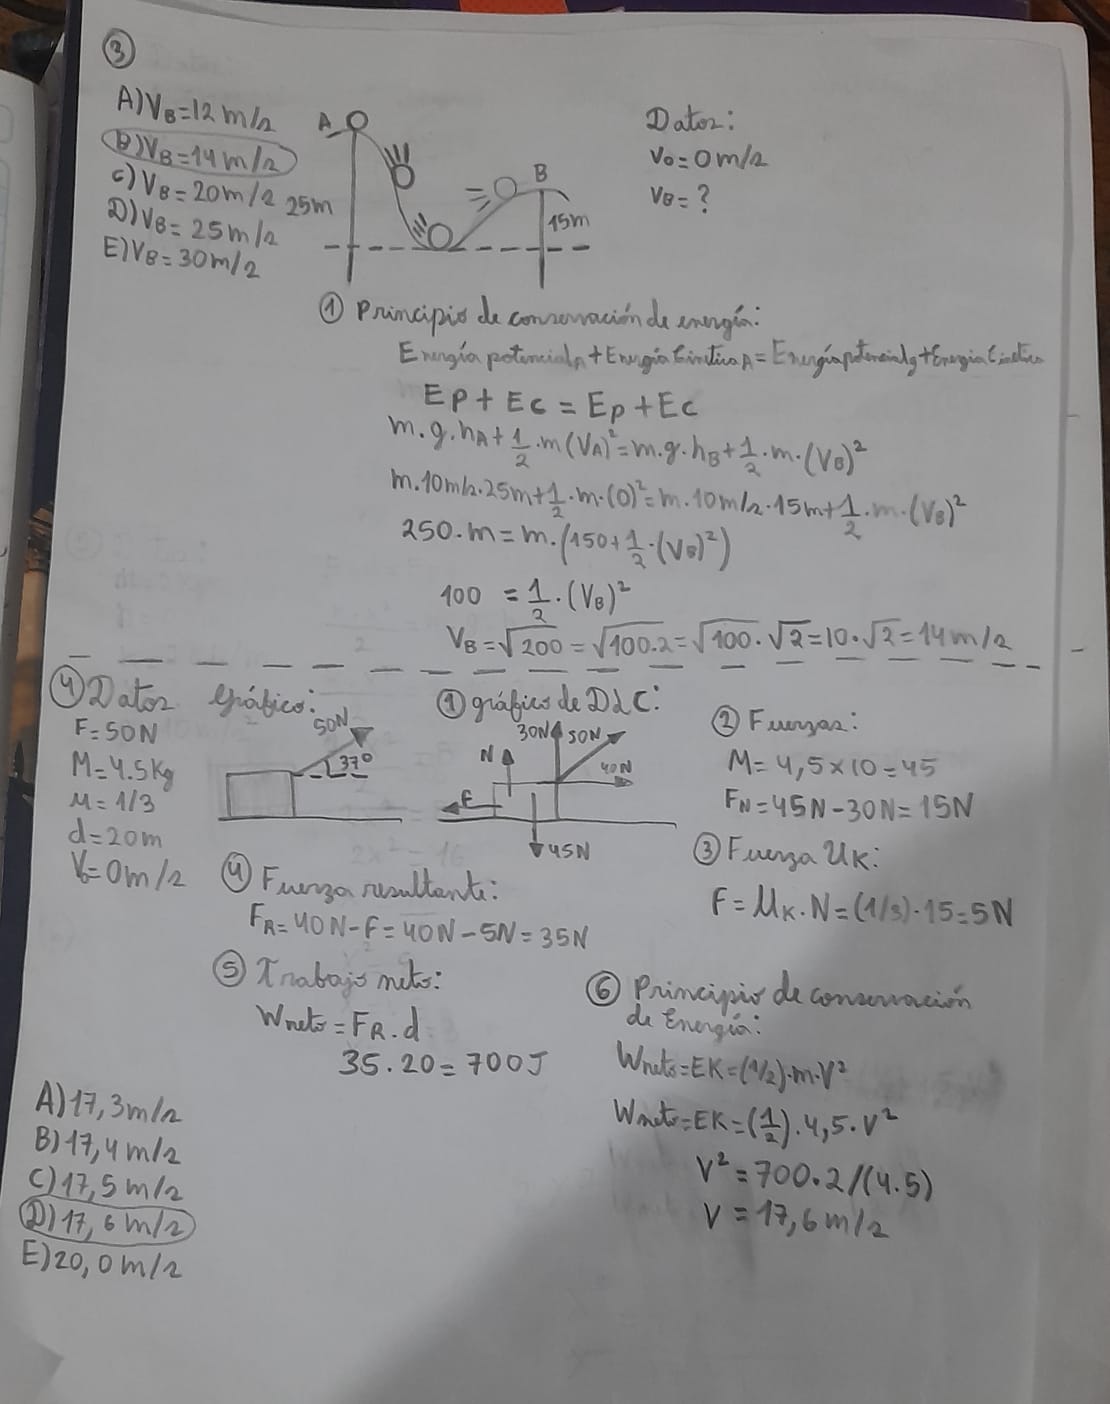 ③
A) VB=12 m/s
B) VB=14 m/s
C) VB=20 m/s
D) VB=25 m/s
E) VB=30 m/s
A
25m
B
15m
Datos:
Vo=0m/s
VB=?
① Principio de conservación de energía:
Energía potencialA+Energía CinéticaA=Energía potencialB+Energía Cinética
Ep+Ec=Ep+Ec
m.g.hA+1/2.m(VA)²=m.g.hB+1/2.m.(VB)²
m.10m/s.25m+1/2.m.(0)²=m.10m/s.15m+1/2.m.(VB)²
250.m=m.(150+1/2.(VB)²)
100 =1/2.(VB)²
VB=√200=√100.2=√100.√2=10.√2=14m/s
④ Datos
F=50N
M=4.5Kg
μ=1/3
d=20m
Vo=0m/s
gráfico:
50N
37°
① gráfico de DLC:
30N
50N
N
40N
F
45N
② Fuerzas:
M=4,5×10=45
FN=45N-30N=15N
③ Fuerza UK:
F=μK.N=(1/3).15=5N
④ Fuerza resultante:
FR=40N-F=40N-5N=35N
⑤ Trabajo neto:
Wneto=FR.d
35.20=700J
⑥ Principio de conservación
de Energía:
Wneto=EK=(1/2).m.V²
Wneto=EK=(1/2).4,5.V²
V²=700.2/(4.5)
V=17,6m/s
A) 17,3m/s
B) 17,4m/s
C) 17,5m/s
D) 17,6m/s
E) 20,0m/s